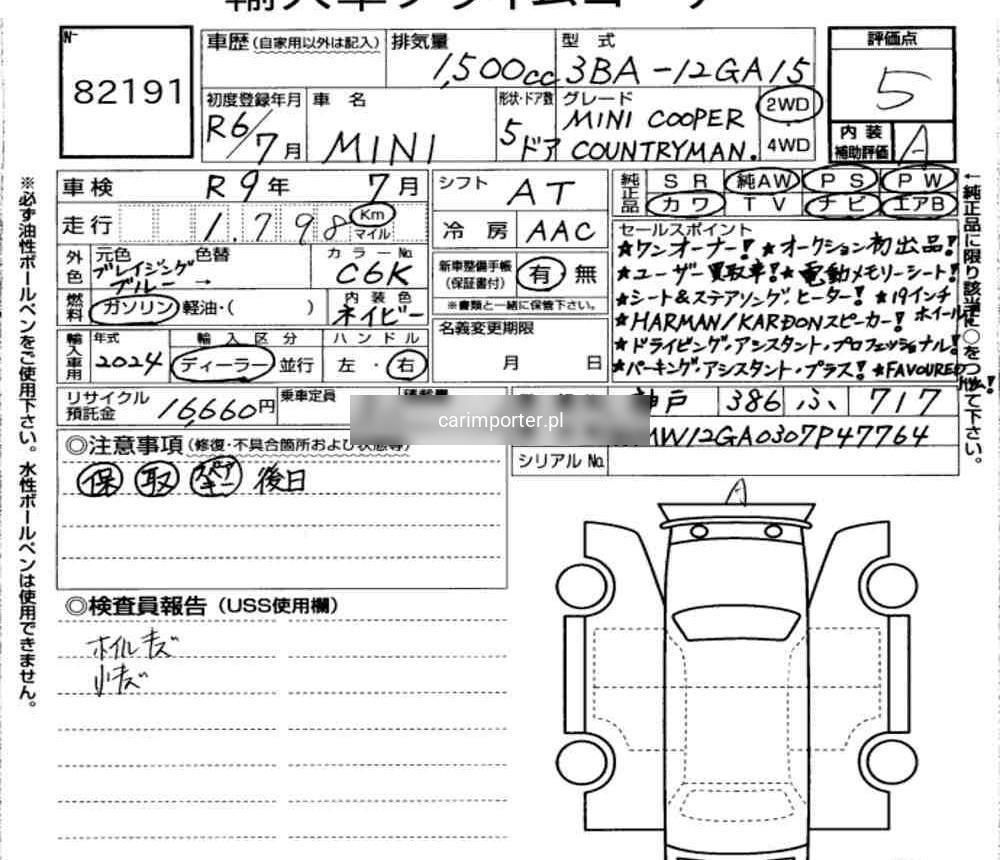 №
82191
車歴(自家用以外は記入)
排気量
1,500cc
型 式
3BA-12GA15
評価点
5
内装
補助評価
A
初度登録年月
R6/7月
車 名
MINI
形状・ドア数
5ドア
グレード
MINI COOPER
COUNTRYMAN.
2WD
4WD
車検 R9年 7月
走行 1,798 Km
マイル
外色
元色
色替
ブレイジング
ブルー →
カラーNo.
C6K
燃料
ガソリン 軽油・( )
内装色
ネイビー
輸入車用
年式
2024
輸入区分
ディーラー 並行
ハンドル
左・右
シフト AT
冷房 AAC
新車整備手帳
(保証書付)
有 無
※書類と一緒に保管下さい。
名義変更期限
月 日
純正品
SR 純AW PS PW
カワ TV ナビ エアB
セールスポイント
★ワンオーナー! ★オークション初出品!
★ユーザー買取車! ★電動メモリーシート!
★シート&ステアリングヒーター! ★19インチ
ホイール
★HARMAN/KARDONスピーカー!
★ドライビング・アシスタント・プロフェッショナル!
★パーキング・アシスタント・プラス! ★FAVOURED
←純正品に限り該当に○をつけて下さい。
リサイクル
預託金
16,660円
乗車定員
神戸 386 ふ 717
MW12GA0307P47764
シリアルNo.
carimporter.pl
◎注意事項(修復・不具合箇所および状態等)
保 取 スペアキー 後日
◎検査員報告(USS使用欄)
ホイルキズ
小キズ
A
※必ず油性ボールペンをご使用下さい。水性ボールペンは使用できません。